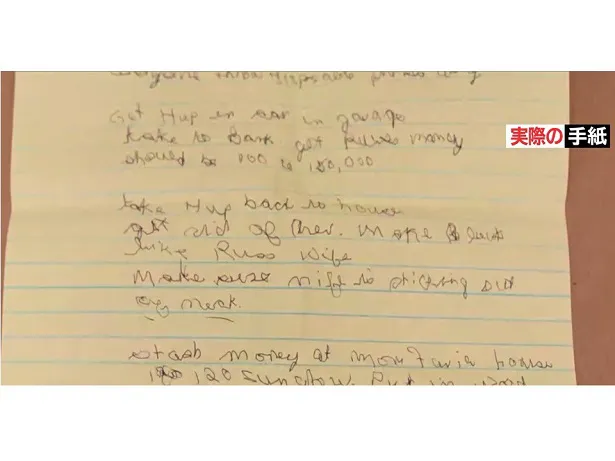 実際の手紙
Get Hup in car in garage
take to Bank get Russ money
should be 100 to 150,000
take Hup back to house
get rid of her. make it look
like Russ wife
Make sure nife is sticking out
of neck.
stash money at house
120 Put in